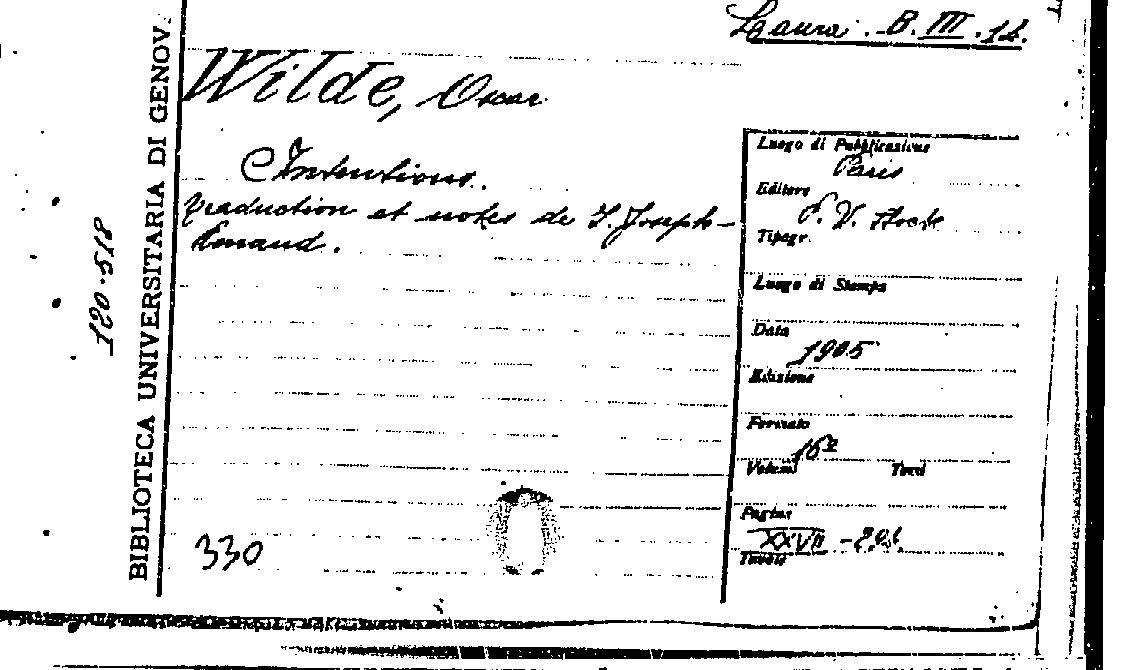 Laura. B. III. 12.
Wilde, Oscar
Intentions.
traduction et notes de J. Joseph-
Renaud.
330
120.518
BIBLIOTECA UNIVERSITARIA DI GENOV.
Luogo di Pubblicazione
Paris
Editore
P. V. Stock
Tipogr.
Luogo di Stampa
Data
1905
Edizione
Formato
16º
Volumi Tomi
Pagine
XXVII -
Tavole